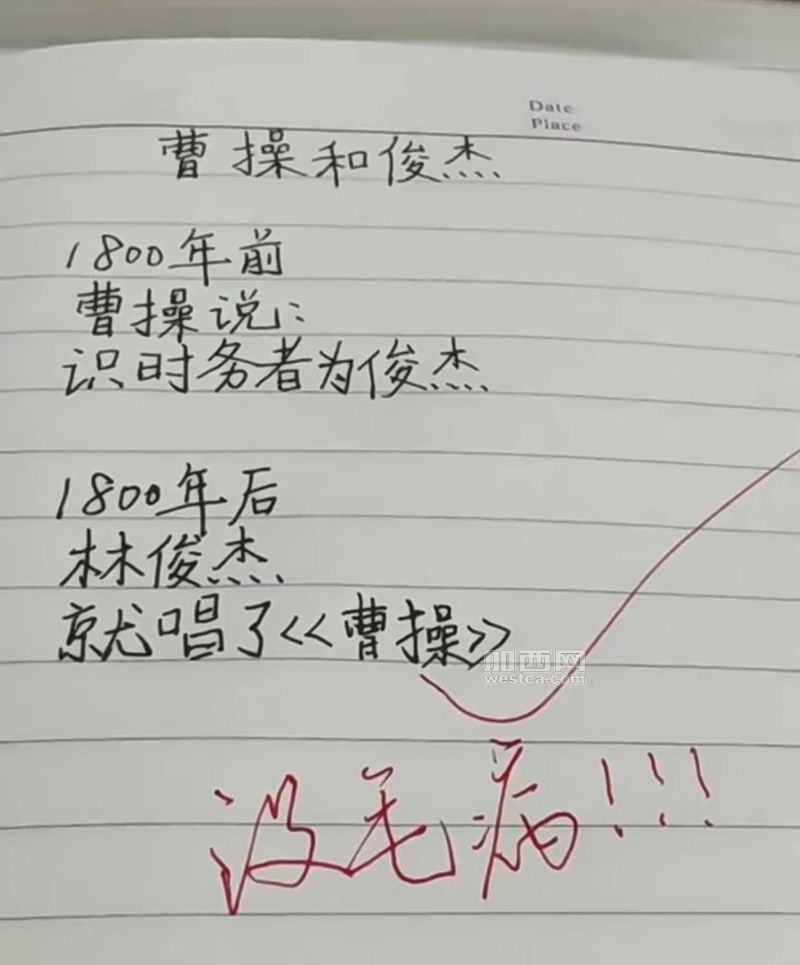 Date
Place
曹操和俊杰
1800年前
曹操说:
识时务者为俊杰
1800年后
林俊杰
就唱了<<曹操>>
加西网
westca.com
没毛病!!!